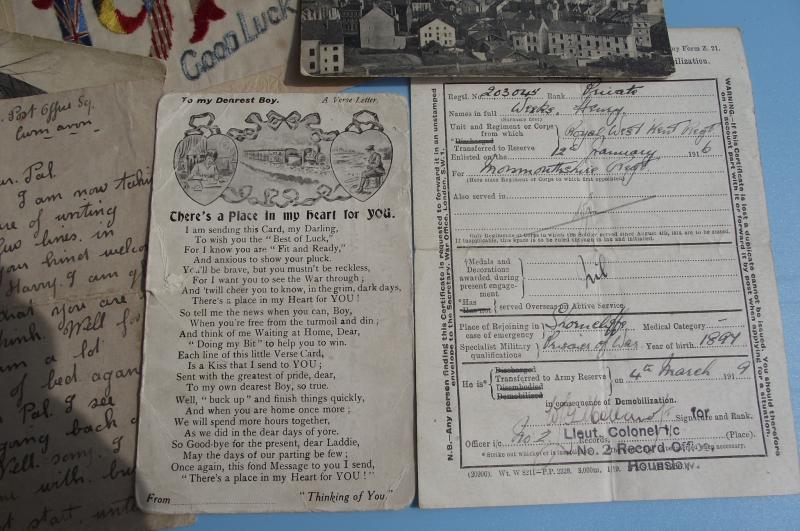 Good Luck
Post Office Sq.
Cwm avon
Pal.
I am now taking
of writing
lines in
your kind welcome
Harry. I am
that you are
Well
a lot
of bed again
Pal. I see
gang back
song. I
with. but
start until
To my Dearest Boy. A Verse Letter.
There's a Place in my heart for YOU.
I am sending this Card, my Darling,
To wish you the "Best of Luck,"
For I know you are "Fit and Ready,"
And anxious to show your pluck.
You'll be brave, but you mustn't be reckless,
For I want you to see the War through;
And 'twill cheer you to know, in the grim, dark days,
There's a place in my Heart for YOU!
So tell me the news when you can, Boy,
When you're free from the turmoil and din;
And think of me Waiting at Home, Dear,
"Doing my Bit" to help you to win.
Each line of this little Verse Card,
Is a Kiss that I send to YOU;
Sent with the greatest of pride, dear,
To my own dearest Boy, so true.
Well, "buck up" and finish things quickly,
And when you are home once more;
We will spend more hours together,
As we did in the dear days of yore.
So Good-bye for the present, dear Laddie,
May the days of our parting be few;
Once again, this fond Message to you I send,
"There's a place in my Heart for YOU!"
From "Thinking of You."
Army Form Z. 21.
Regtl. No. 203045 Rank Private
Names in full Weeks Henry
(Surname first)
Unit and Regiment or Corps
from which Royal West Kent Regt
*Discharged
Transferred to Reserve
Enlisted on the 12th January 1916
For Monmouthshire Regt
(Here state Regiment or Corps to which first appointed)
Also served in
Only Regiments or Corps in which the Soldier served since August 4th, 1914 are to be stated.
If inapplicable, this space is to be ruled through in ink and initialled.
†Medals and
Decorations
awarded during
present engage-
ment
Nil
*Has
Has not served Overseas on Active Service.
Place of Rejoining in
case of emergency Shorncliffe Medical Category –
Specialist Military
qualifications Prisoner of War Year of birth 1897
He is* Discharged
Transferred to Army Reserve
Disembodied
Demobilized
on 4th March 1919
in consequence of Demobilization.
Signature and Rank.
for
Officer i/c No 2 Records. (Place).
Lieut. Colonel i/c
No. 2 Record Office
Hounslow.
* Strike out whichever is
(20906). Wt. W 8211—P.P. 2329. 3,000m. 1/19.
N.B.—Any person finding this Certificate is requested to forward it in an unstamped
envelope to the Secretary, War Office, London, S.W. 1.
WARNING.—If this Certificate is lost a duplicate cannot be issued. You should therefore
on no account part with it or forward it by post when applying for a situation.